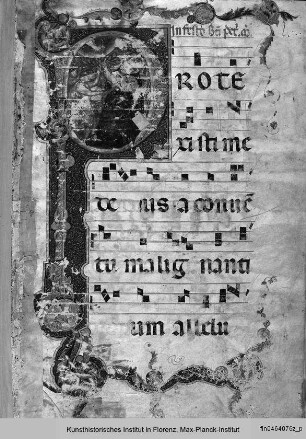 in festo
P ROTE
xisti me
deus a convē
tu malignanti
um allelu
Kunsthistorisches Institut in Florenz, Max-Planck-Institut